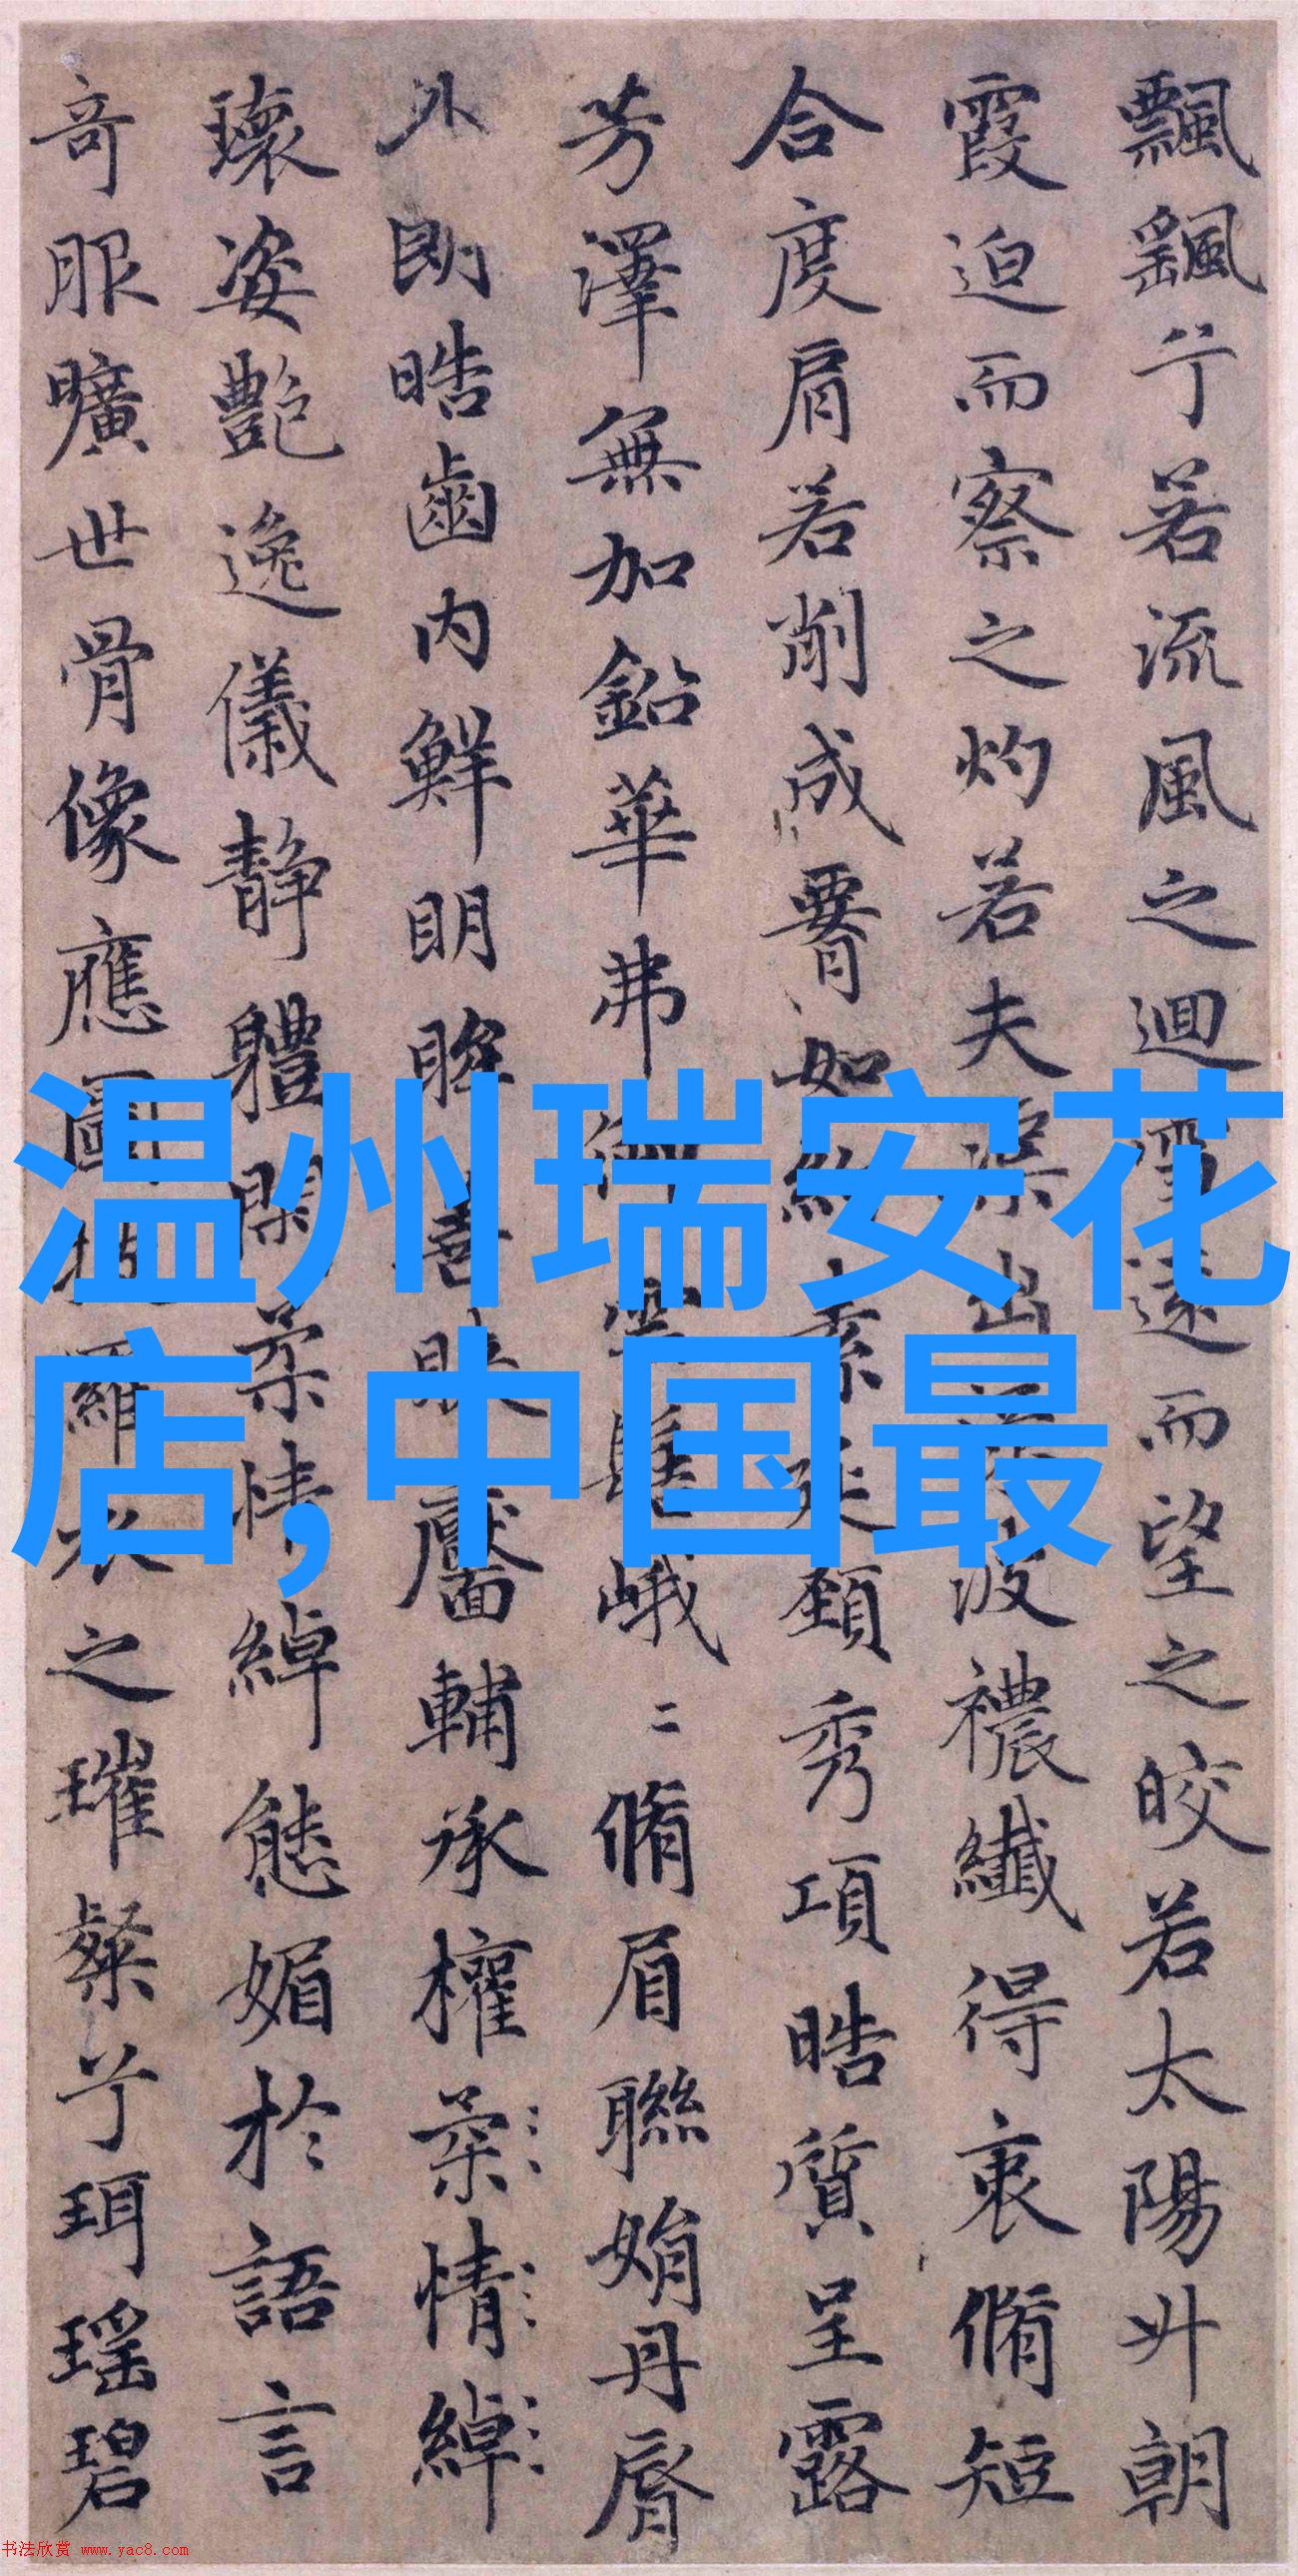 飄飖兮若流風之迴雪遠而望之皎若太陽升朝
霞迫而察之灼若夫渠出淥波襛纖得衷脩短
合度肩若削成䙅如約素延頸秀項晧質呈露
芳澤無加鉛華弗御雲髻峨〻脩眉聯娟丹脣
外朗晧齒內鮮明眸善睞靨輔承權柔情綽
瓌姿艷逸儀靜軆閑柔情綽態媚於語言
奇服曠世骨像應圖披羅衣之璀粲兮珥瑤碧
温州瑞安花
店,中国最
书法欣赏 www.yac8.com